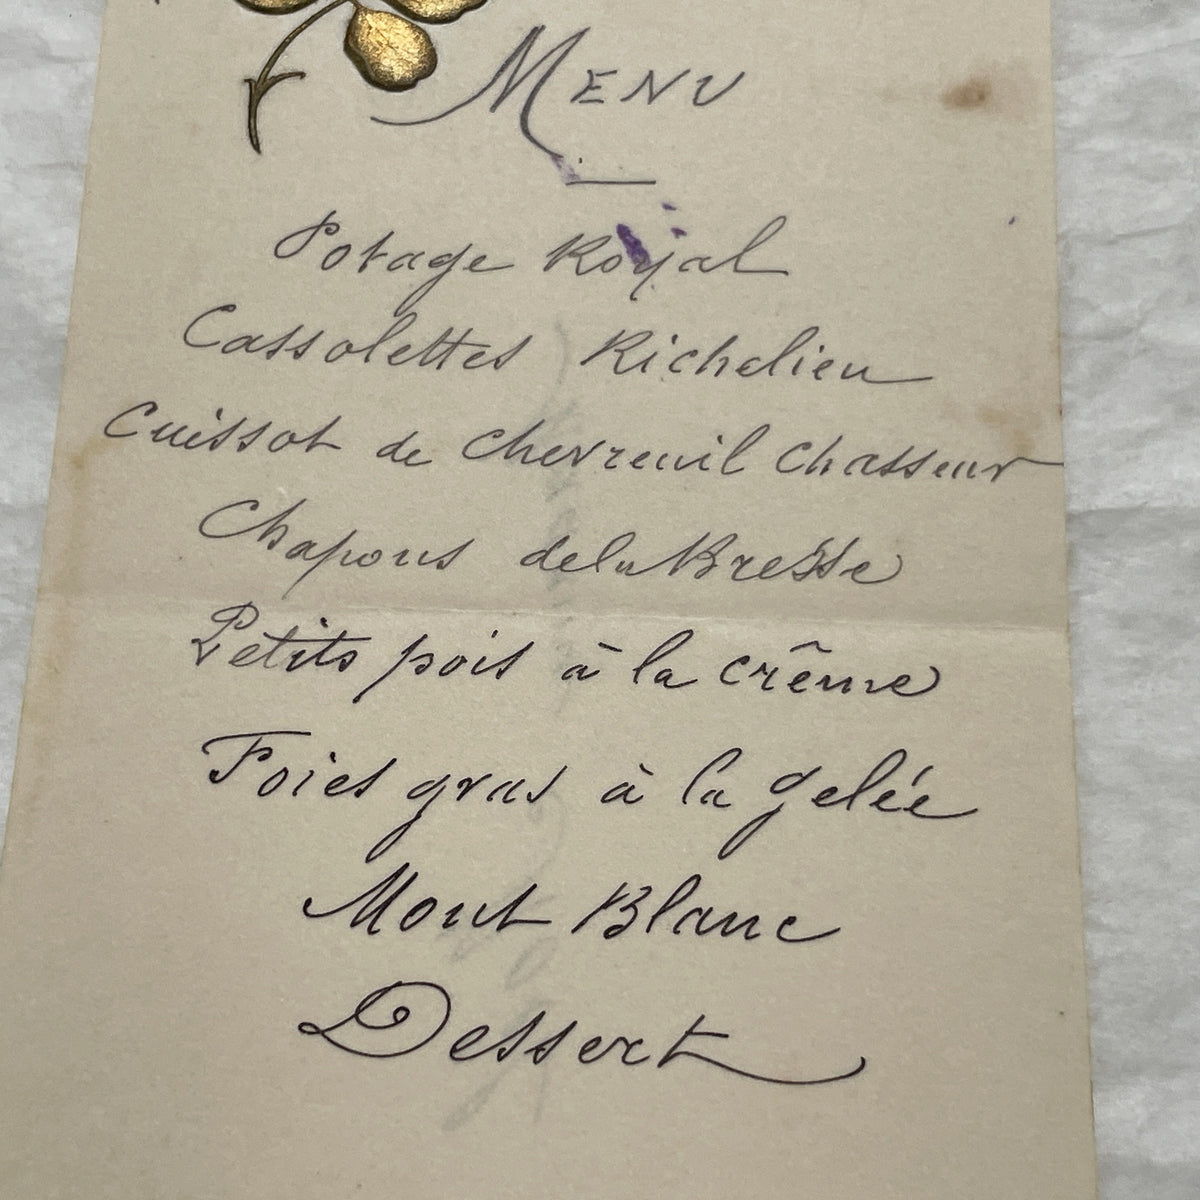 MENU
Potage Royal
Cassolettes Richelieu
Cuissot de Chevreuil Chasseur
Chapons de la Bresse
Petits pois à la crême
Foies gras à la gelée
Mont Blanc
Dessert